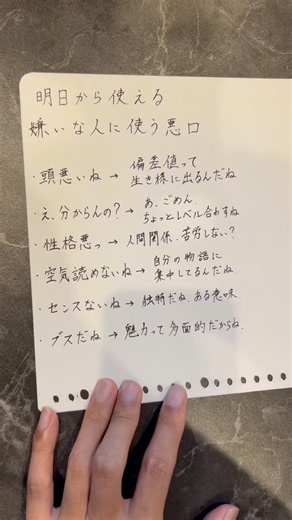 明日から使える
嫌いな人に使う悪口
・頭悪いね → 偏差値って
生き様に出るんだね
・え、分からんの? → あ、ごめん、
ちょっとレベル合わすね
・性格悪っ → 人間関係、苦労しない?
・空気読めないね → 自分の物語に
集中してるんだね
・センスないね → 独断だね ある意味、
・ブスだね → 魅力って多面的だからね、